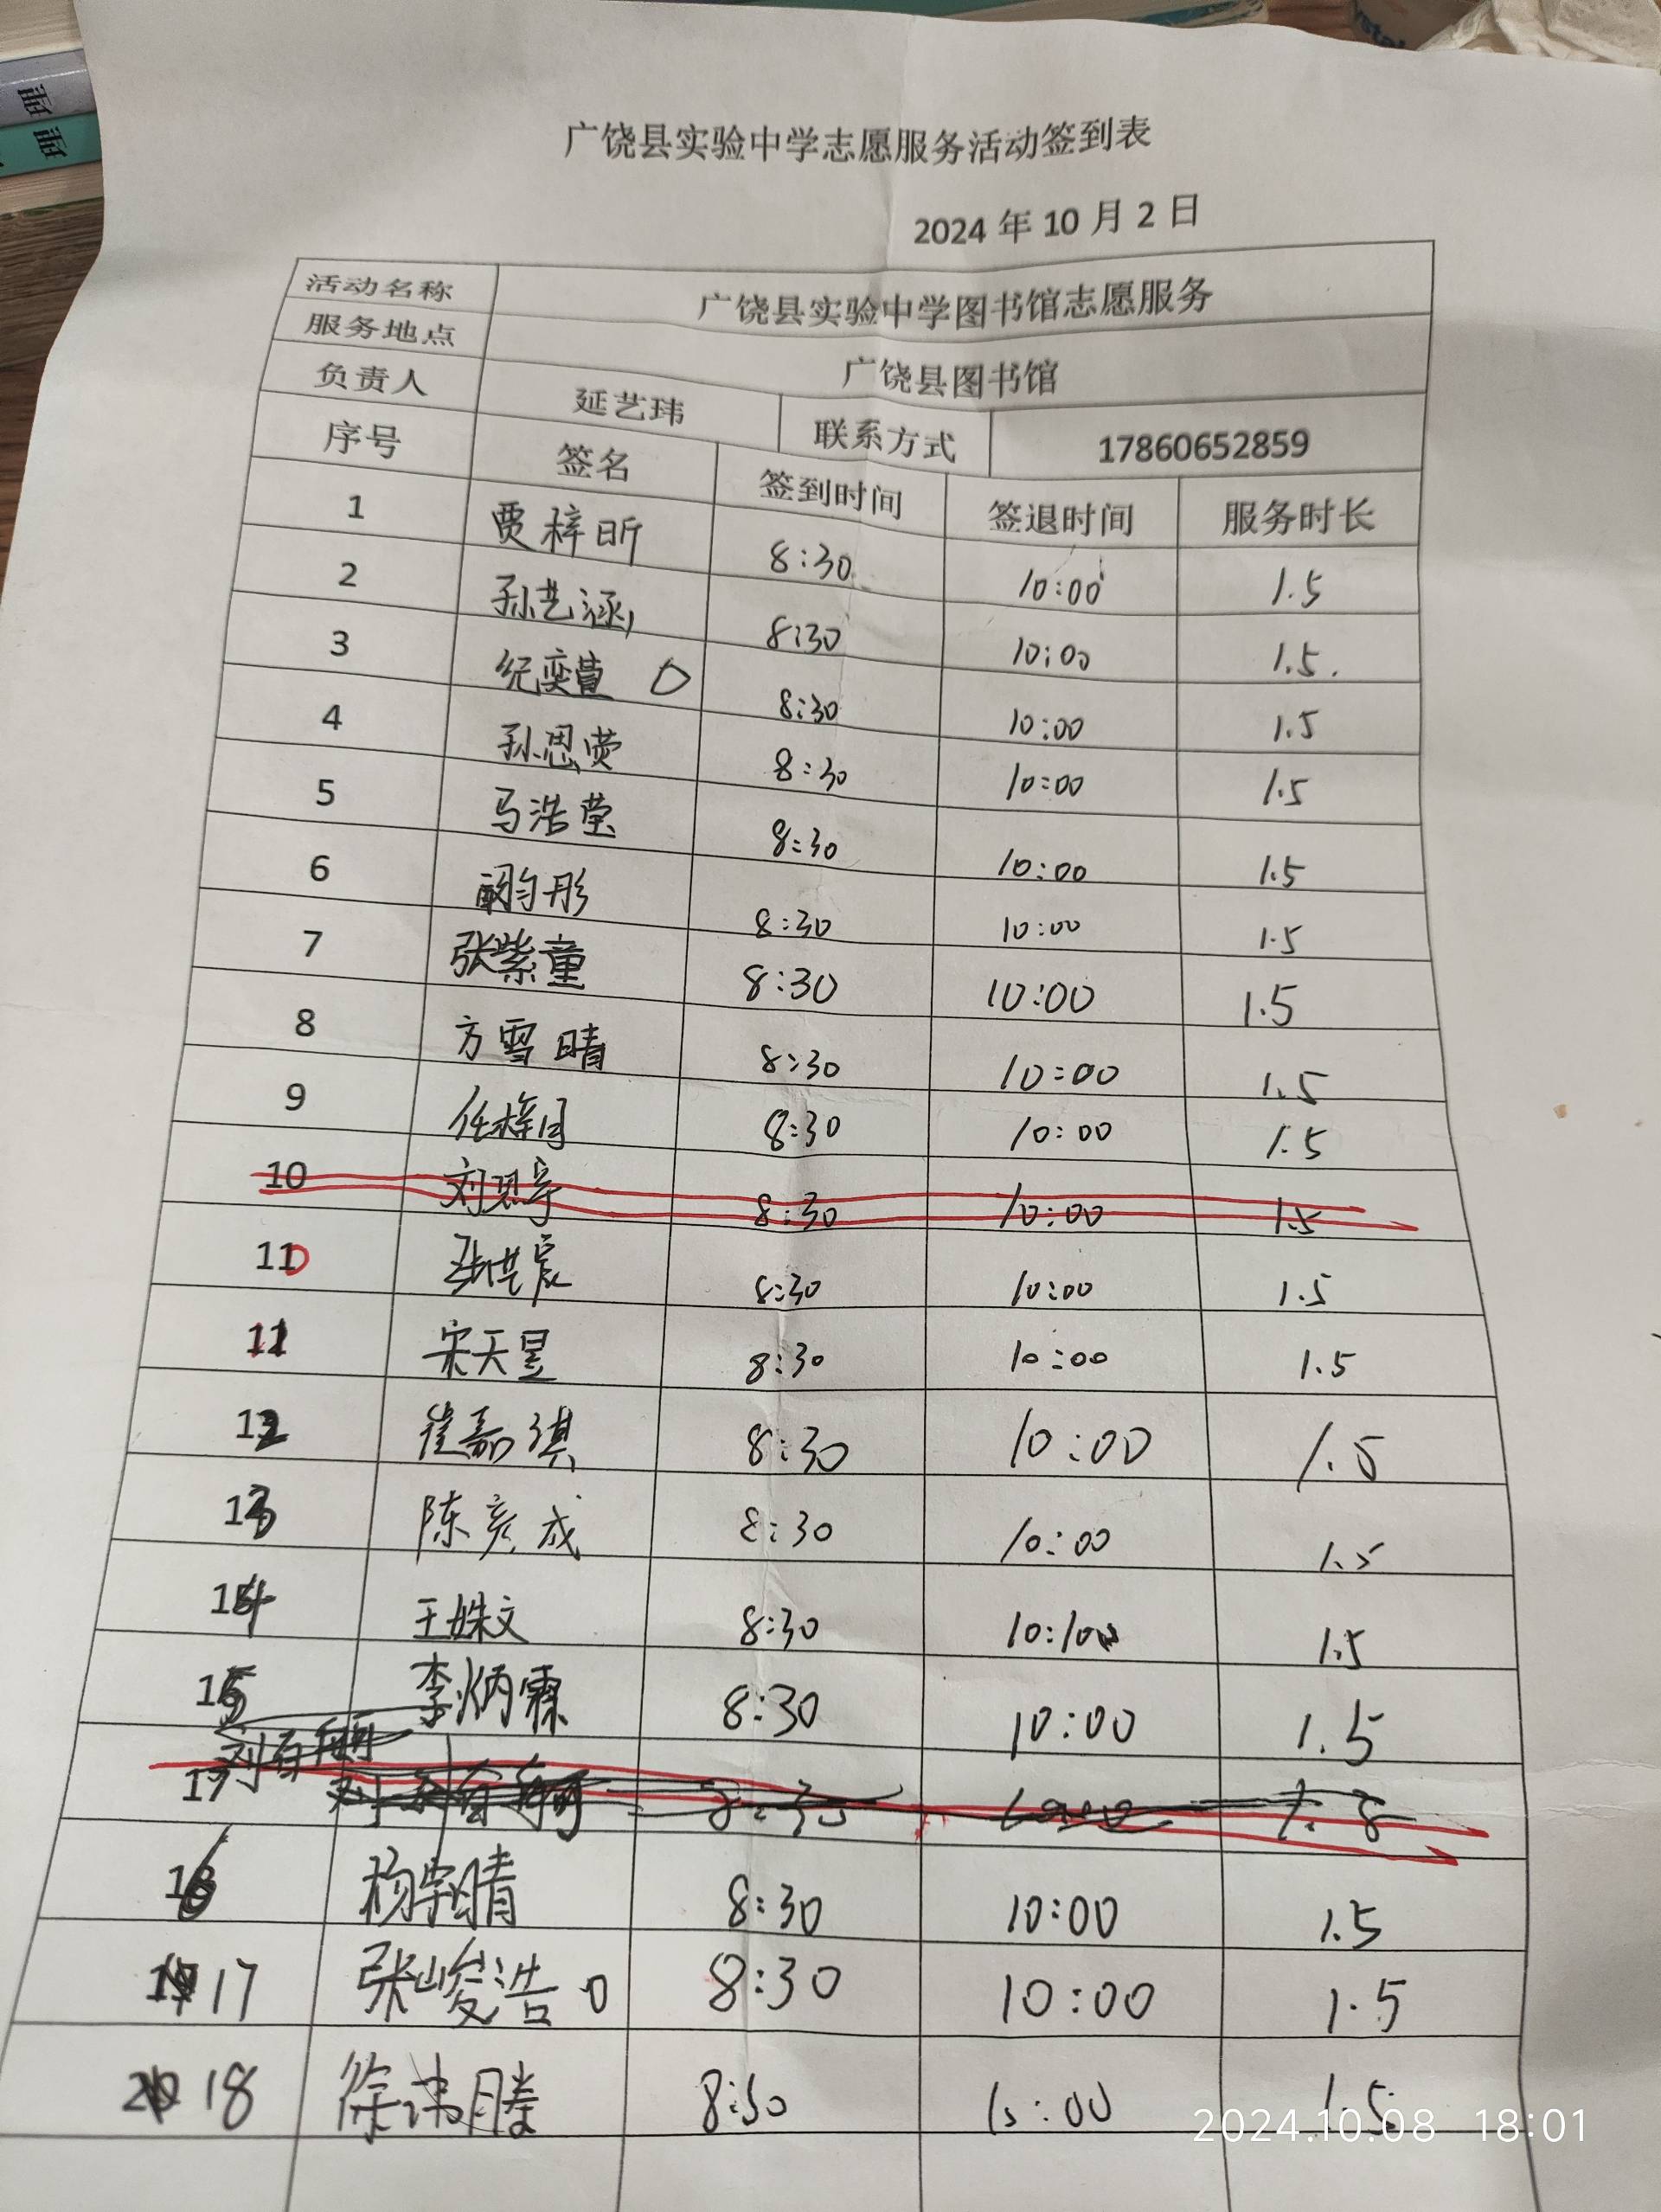 广饶县实验中学志愿服务活动签到表
2024 年 10 月 2 日
活动名称 广饶县实验中学图书馆志愿服务
服务地点 广饶县图书馆
负责人 延艺玮 联系方式 17860652859
序号 签名 签到时间 签退时间 服务时长
1 贾梓昕 8:30 10:00 1.5
2 孙艺涵 8:30 10:00 1.5.
3 纪奕萱 8:30 10:00 1.5
4 孙思荧 8:30 10:00 1.5
5 马浩莹 8:30 10:00 1.5
6 8:30 10:00 1.5
7 张紫童 8:30 10:00 1.5
8 方雪晴 8:30 10:00 1.5
9 任梓月 8:30 10:00 1.5
10 刘思宇 8:30 10:00 1.5
10 8:30 10:00 1.5
11 宋天昱 8:30 10:00 1.5
12 崔嘉琪 8:30 10:00 1.5
13 陈彦成 8:30 10:00 1.5
14 王姝文 8:30 1.5
15 李炳霖 8:30 10:00 1.5
17 8:30
16 杨宇晴 8:30 10:00 1.5
17 张峻浩 8:30 10:00 1.5
18 徐沛腾 8:30 10:00 1.5
2024.10.08 18:01